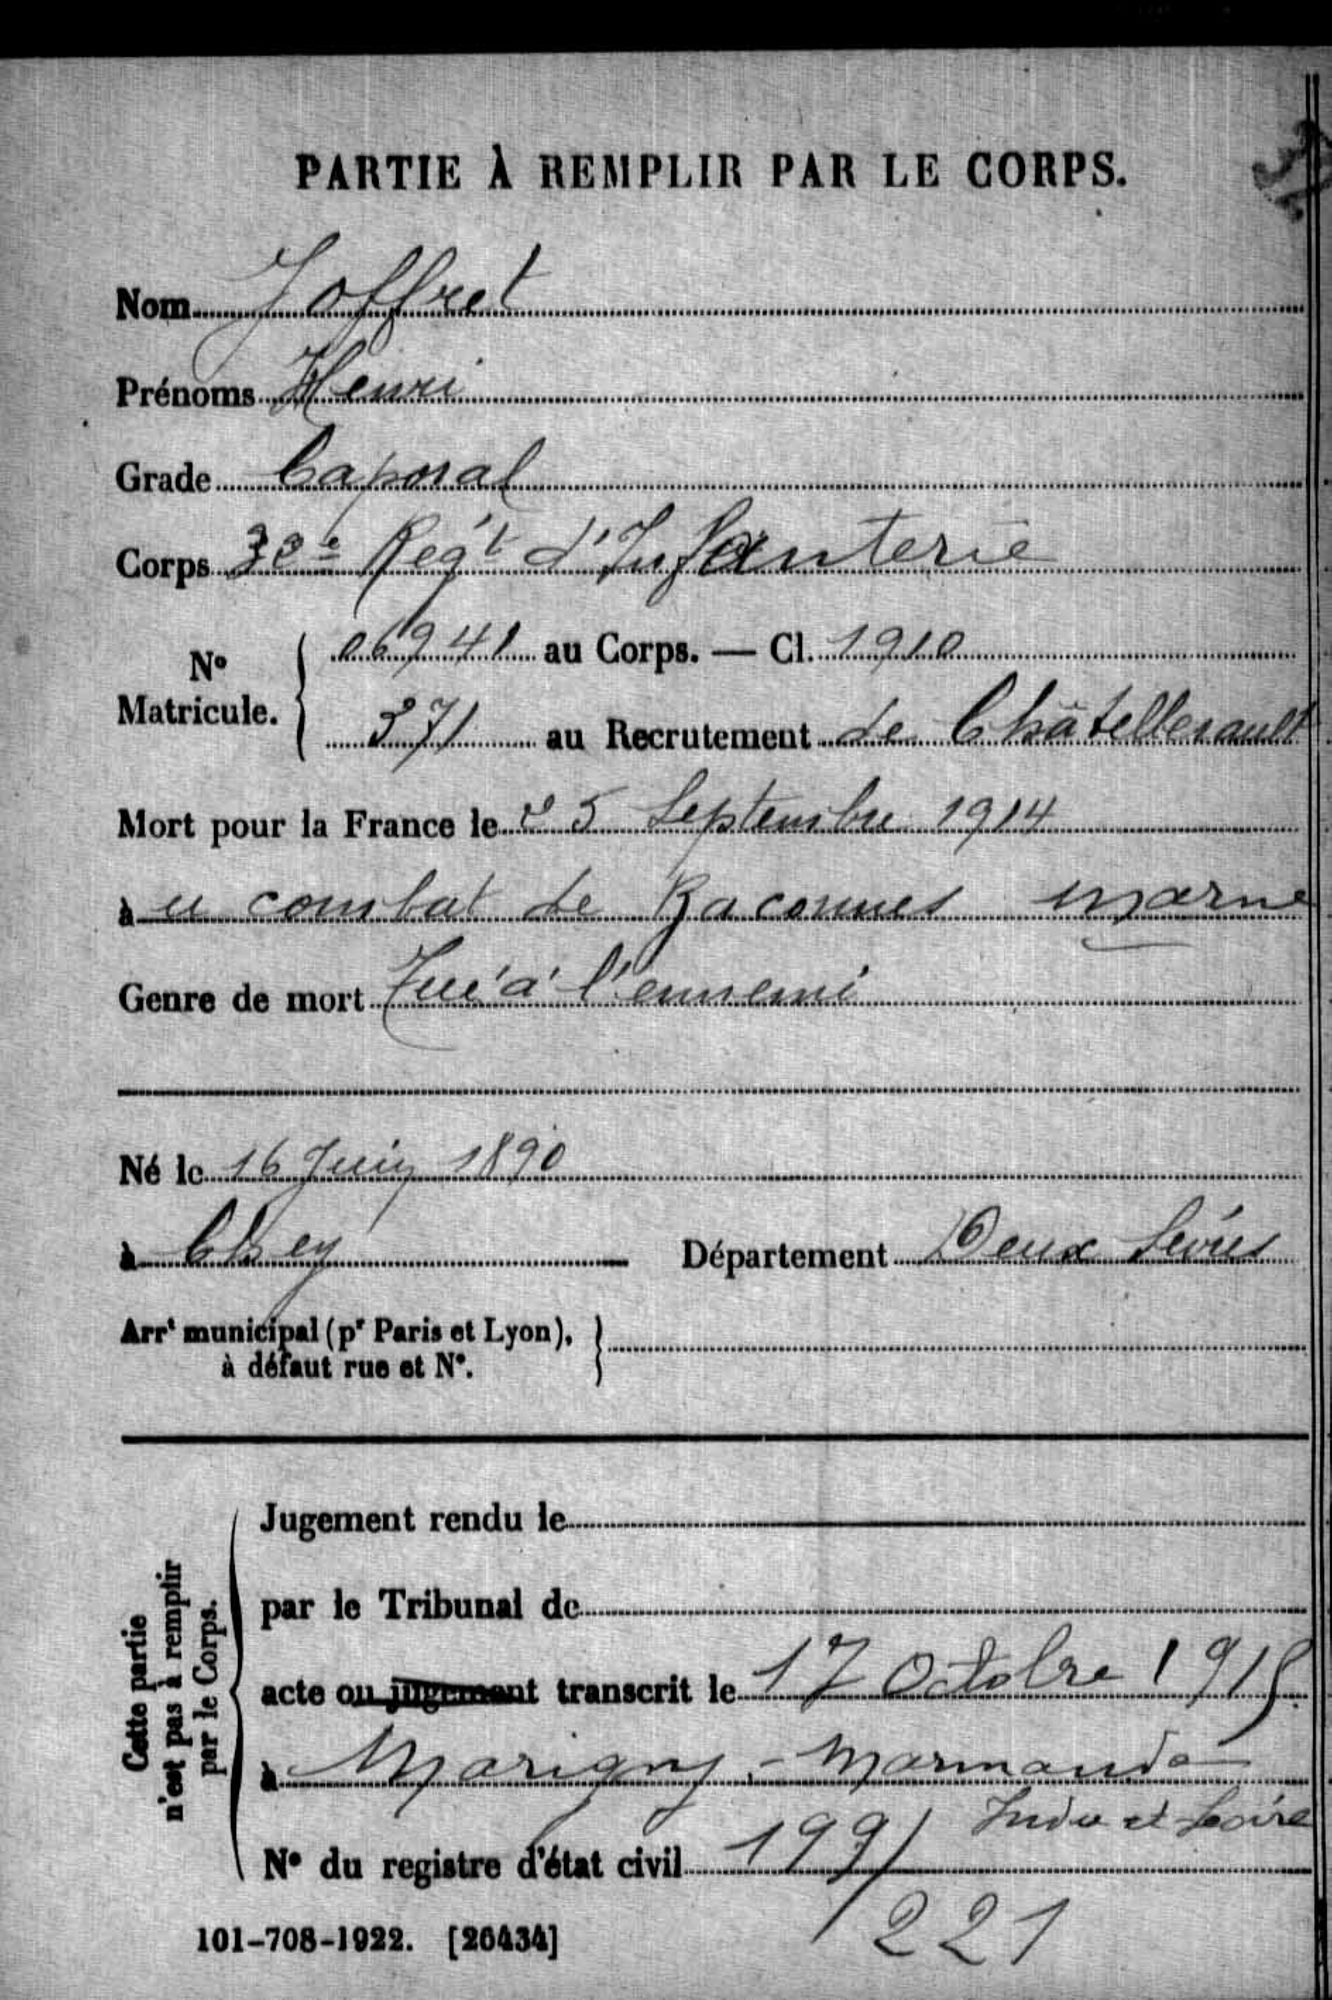 PARTIE À REMPLIR PAR LE CORPS.
Nom Joffret
Prénoms Henri
Grade Caporal
Corps Regt d'Infanterie
No Matricule. 06941 au Corps. — Cl. 1910
371 au Recrutement de Châtellerault
Mort pour la France le 25 Septembre 1914
à u combat de Baconnes Marne
Genre de mort Tué à l'ennemi
Né le 16 Juin 1890
à Chey Département Deux Sèvres
Arrt municipal (pr Paris et Lyon),
à défaut rue et No.
Cette partie
n'est pas à remplir
par le Corps.
Jugement rendu le
par le Tribunal de
acte ou jugement transcrit le 17 Octobre 1915
à Marigny-Marmande
Indre et Loire
No du registre d'état civil 199/
221
101-708-1922. [26434]